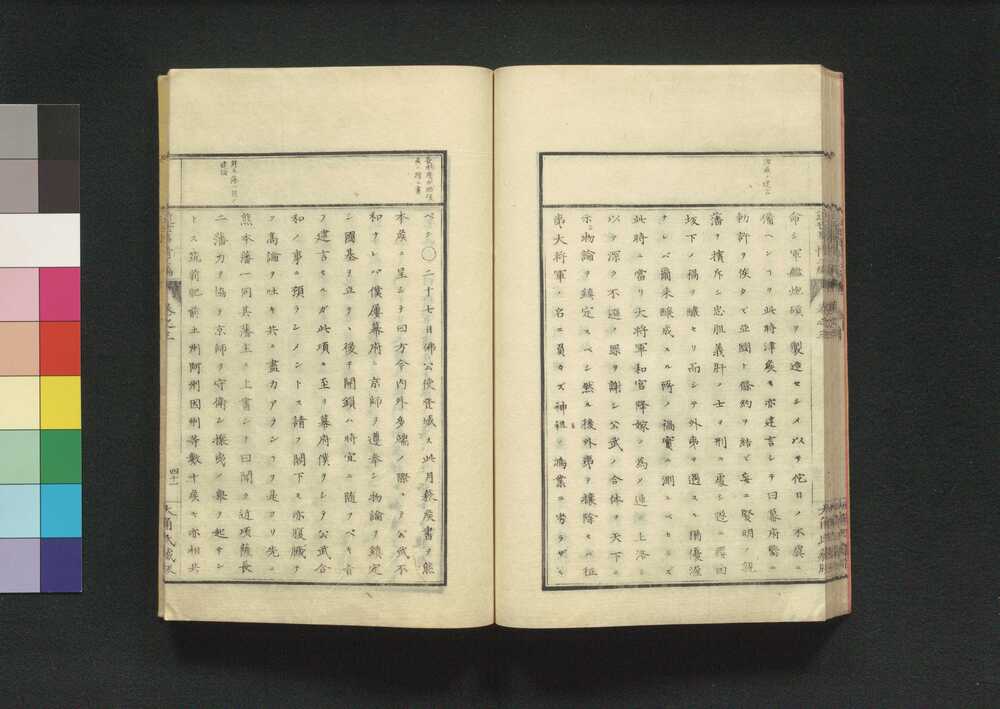 命シ軍艦炮礟ヲ製造セシメ以テ佗日ノ不虞ニ
備ヘシコヲ此時津矦モ亦建言シテ曰幕府嚮ニ
勅許ヲ俟タデ亞國ト條約ヲ結ビ妄ニ賢明ノ親
藩ヲ擯斥シ忠肌義肝ノ士ヲ刑ニ處シ遂ニ櫻田
坂下ノ禍ヲ釀セリ而シテ外夷ヲ遇スル猶優渥
ナレバ爾来釀成スル所ノ禍實ニ測ルベカラズ
此時ニ當リ大将軍和宮降嫁ノ為メ速ニ上洛シ
以テ深ク不遜ノ罪ヲ謝シ公武ノ合体ヲ天下ニ
示シ物論ヲ鎮定スベシ然ル後外夷ヲ攘除セバ征
夷大将軍ノ名ニ負カズ神祖ノ鴻業ニ劣ラザル
ベシ〇二十七日佛公使登城ス此月萩矦書ヲ熊
本矦ニ呈シテ曰方今内外多端ノ際ニシ公武不
和ナレバ僕屢幕府ニ京師ヲ遵奉シ物論ヲ鎮定
シ國基ヲ立テ、後チ開鎖ハ時宜ニ随フベキ旨
ヲ建言セルガ此項ニ至リ幕府僕ヲシテ公武合
和ノ事ニ預ラシメントス請フ閣下ニ亦腹臓ナ
ク高論ヲ吐キ共ニ盡力アランコヲ是ヨリ先ニ
熊本藩一同其藩主ニ上書シテ曰聞ク近項薩長
二藩力ヲ協セ京師ヲ守衛シ攘夷ノ擧ヲ起サン
トス筑前肥前土州阿州因州等數十矦モ亦相共
四十一